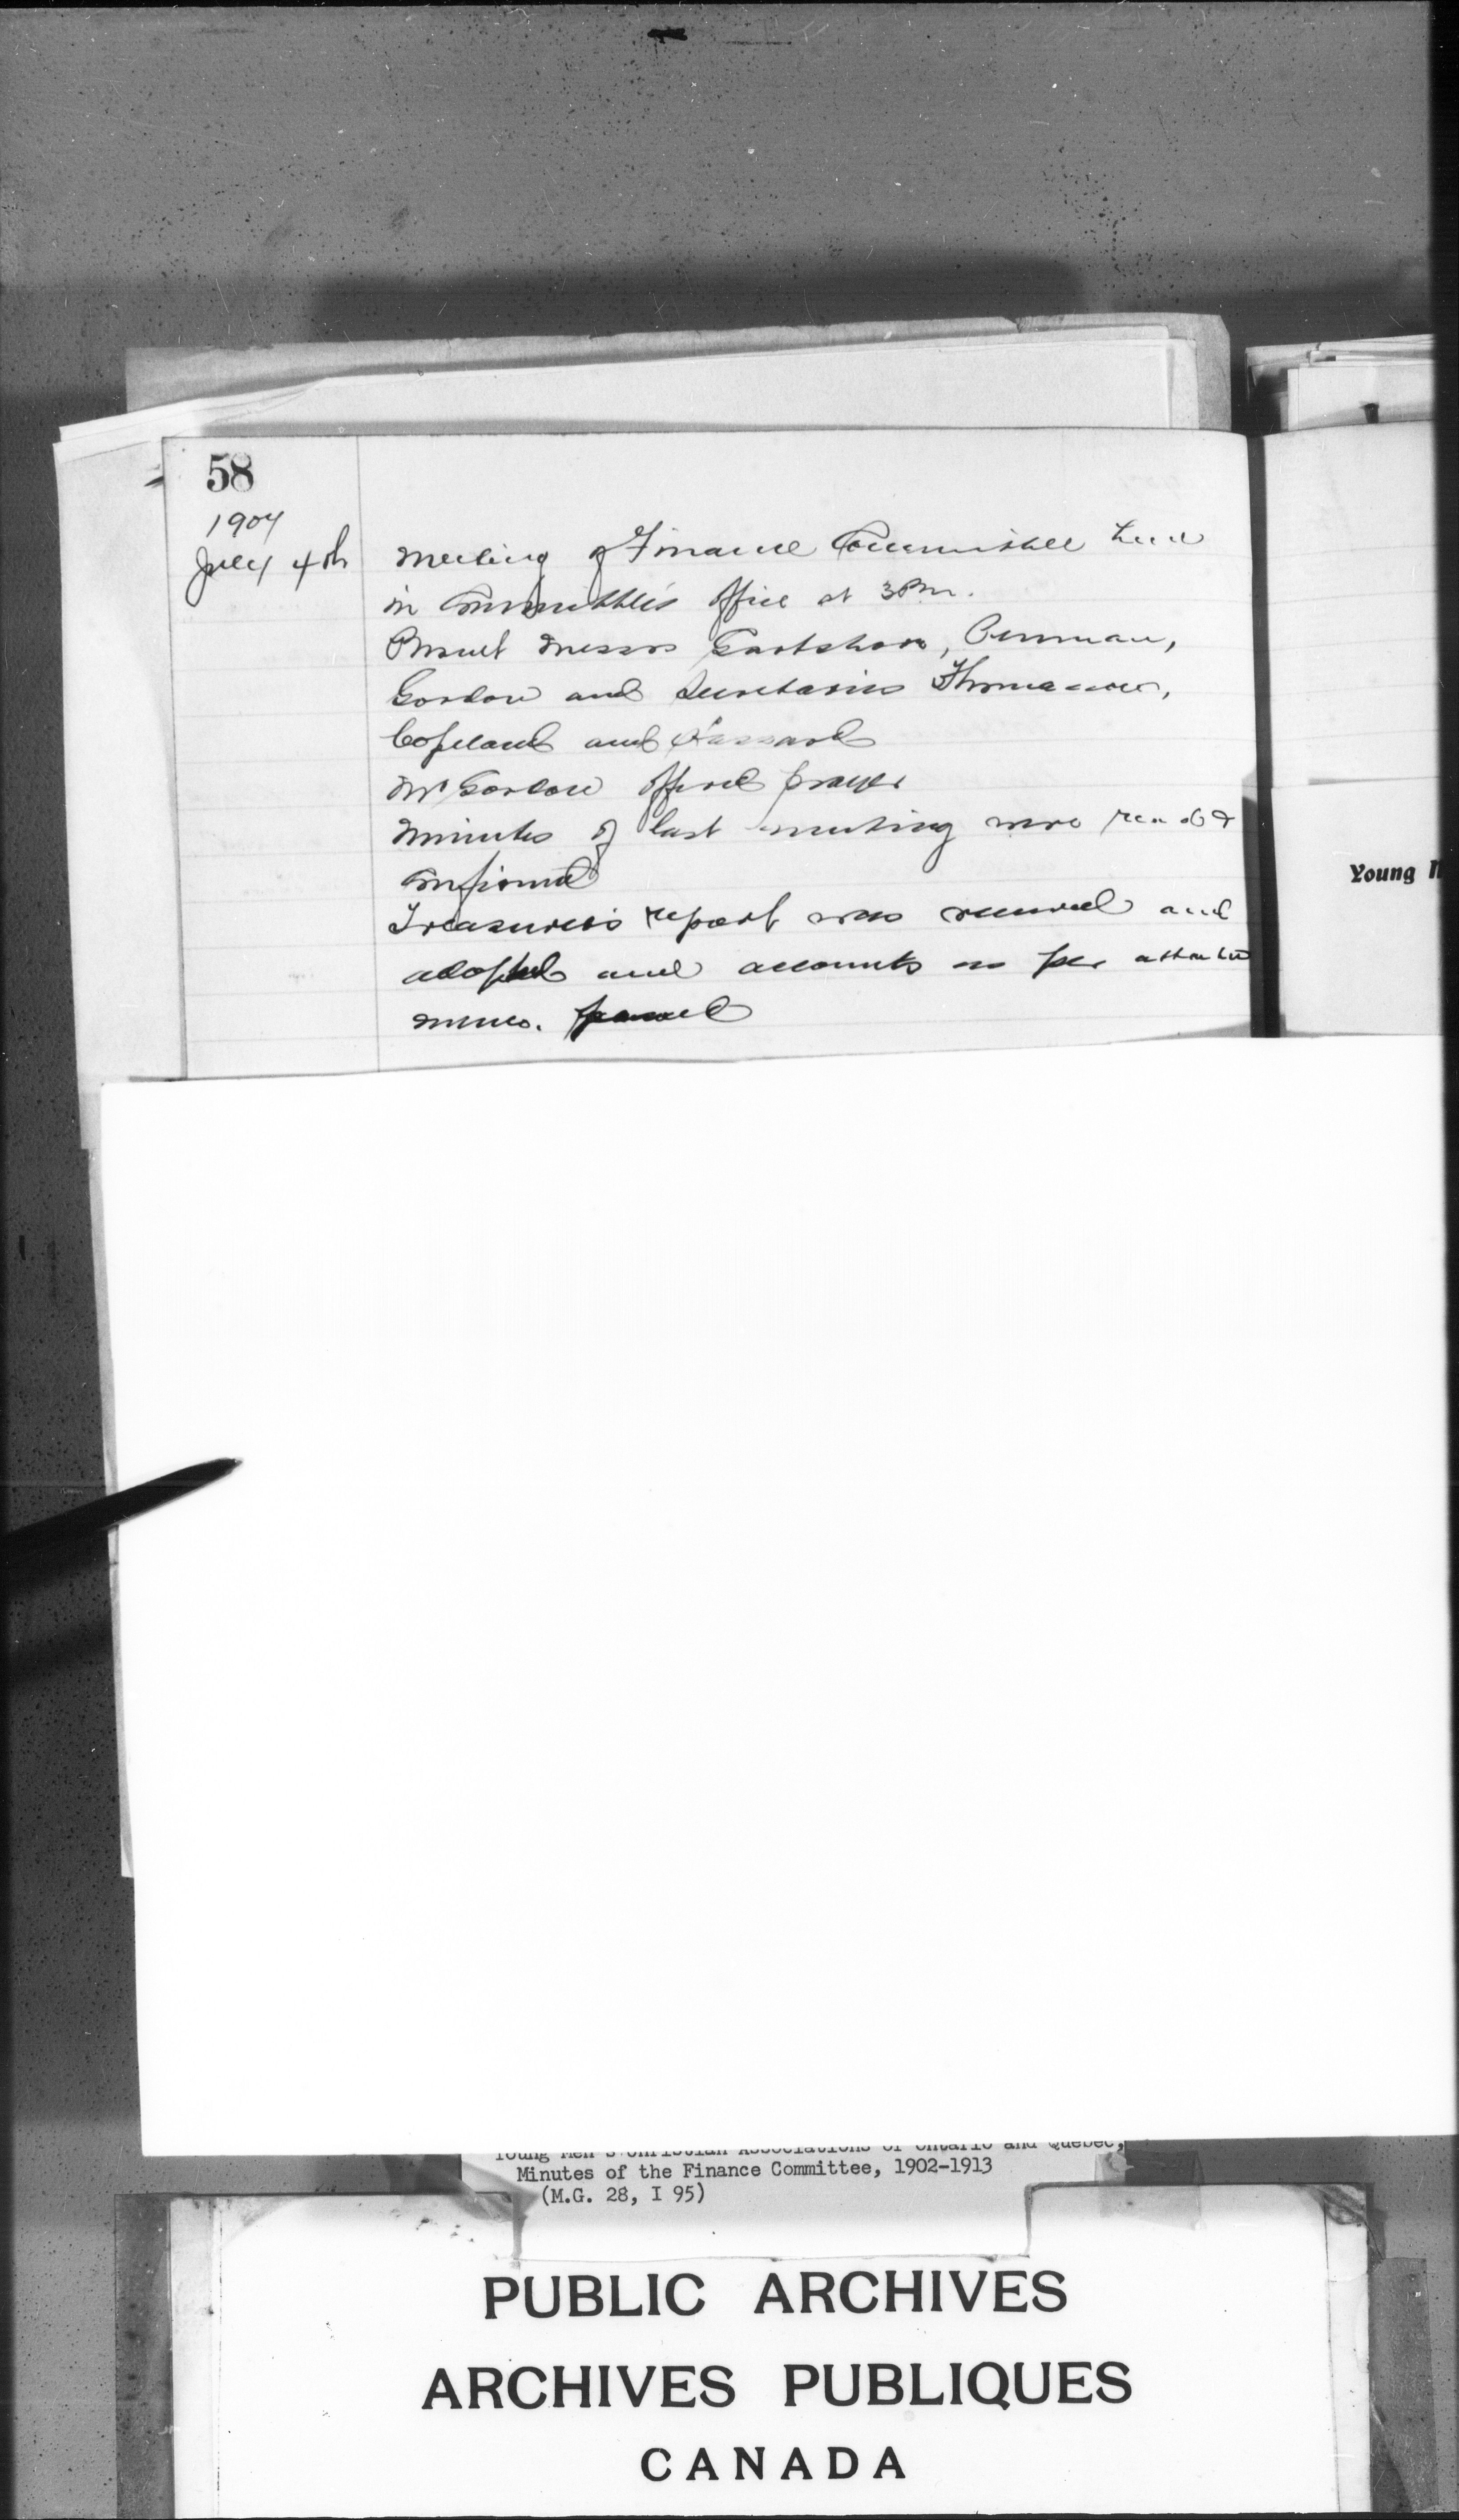 58
1907
July 4th
Meeting of Finance Committee held
in Committee's office at 3 Pm.
Present Messrs Gartshore, Penman,
Gordon and Secretaries Thomason,
Copeland and Hassard
Mr Gordon offered prayer
Minutes of last meeting were read &
confirmed
Treasurer's report was received and
adopted and accounts as per attached
passed
Young
Young Men's Christian Associations of Ontario and Quebec,
Minutes of the Finance Committee, 1902-1913
(M.G. 28, I 95)
PUBLIC ARCHIVES
ARCHIVES PUBLIQUES
CANADA